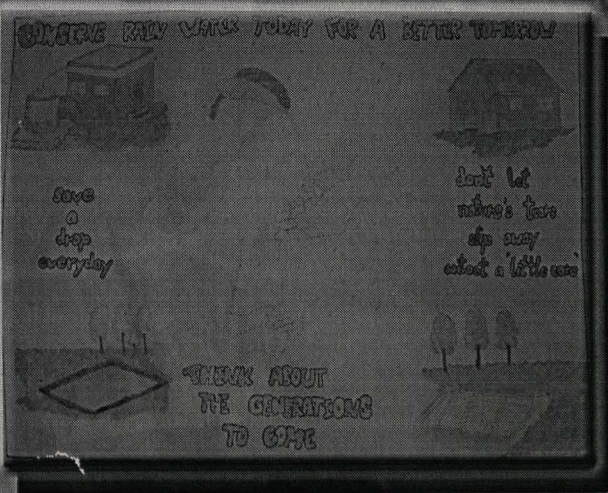 CONSERVE RAIN WATER TODAY FOR A BETTER TOMORROW
save
a
drop
everyday
dont let
nature's tears
slip away
without a little care
THINK ABOUT
THE GENERATIONS
TO COME